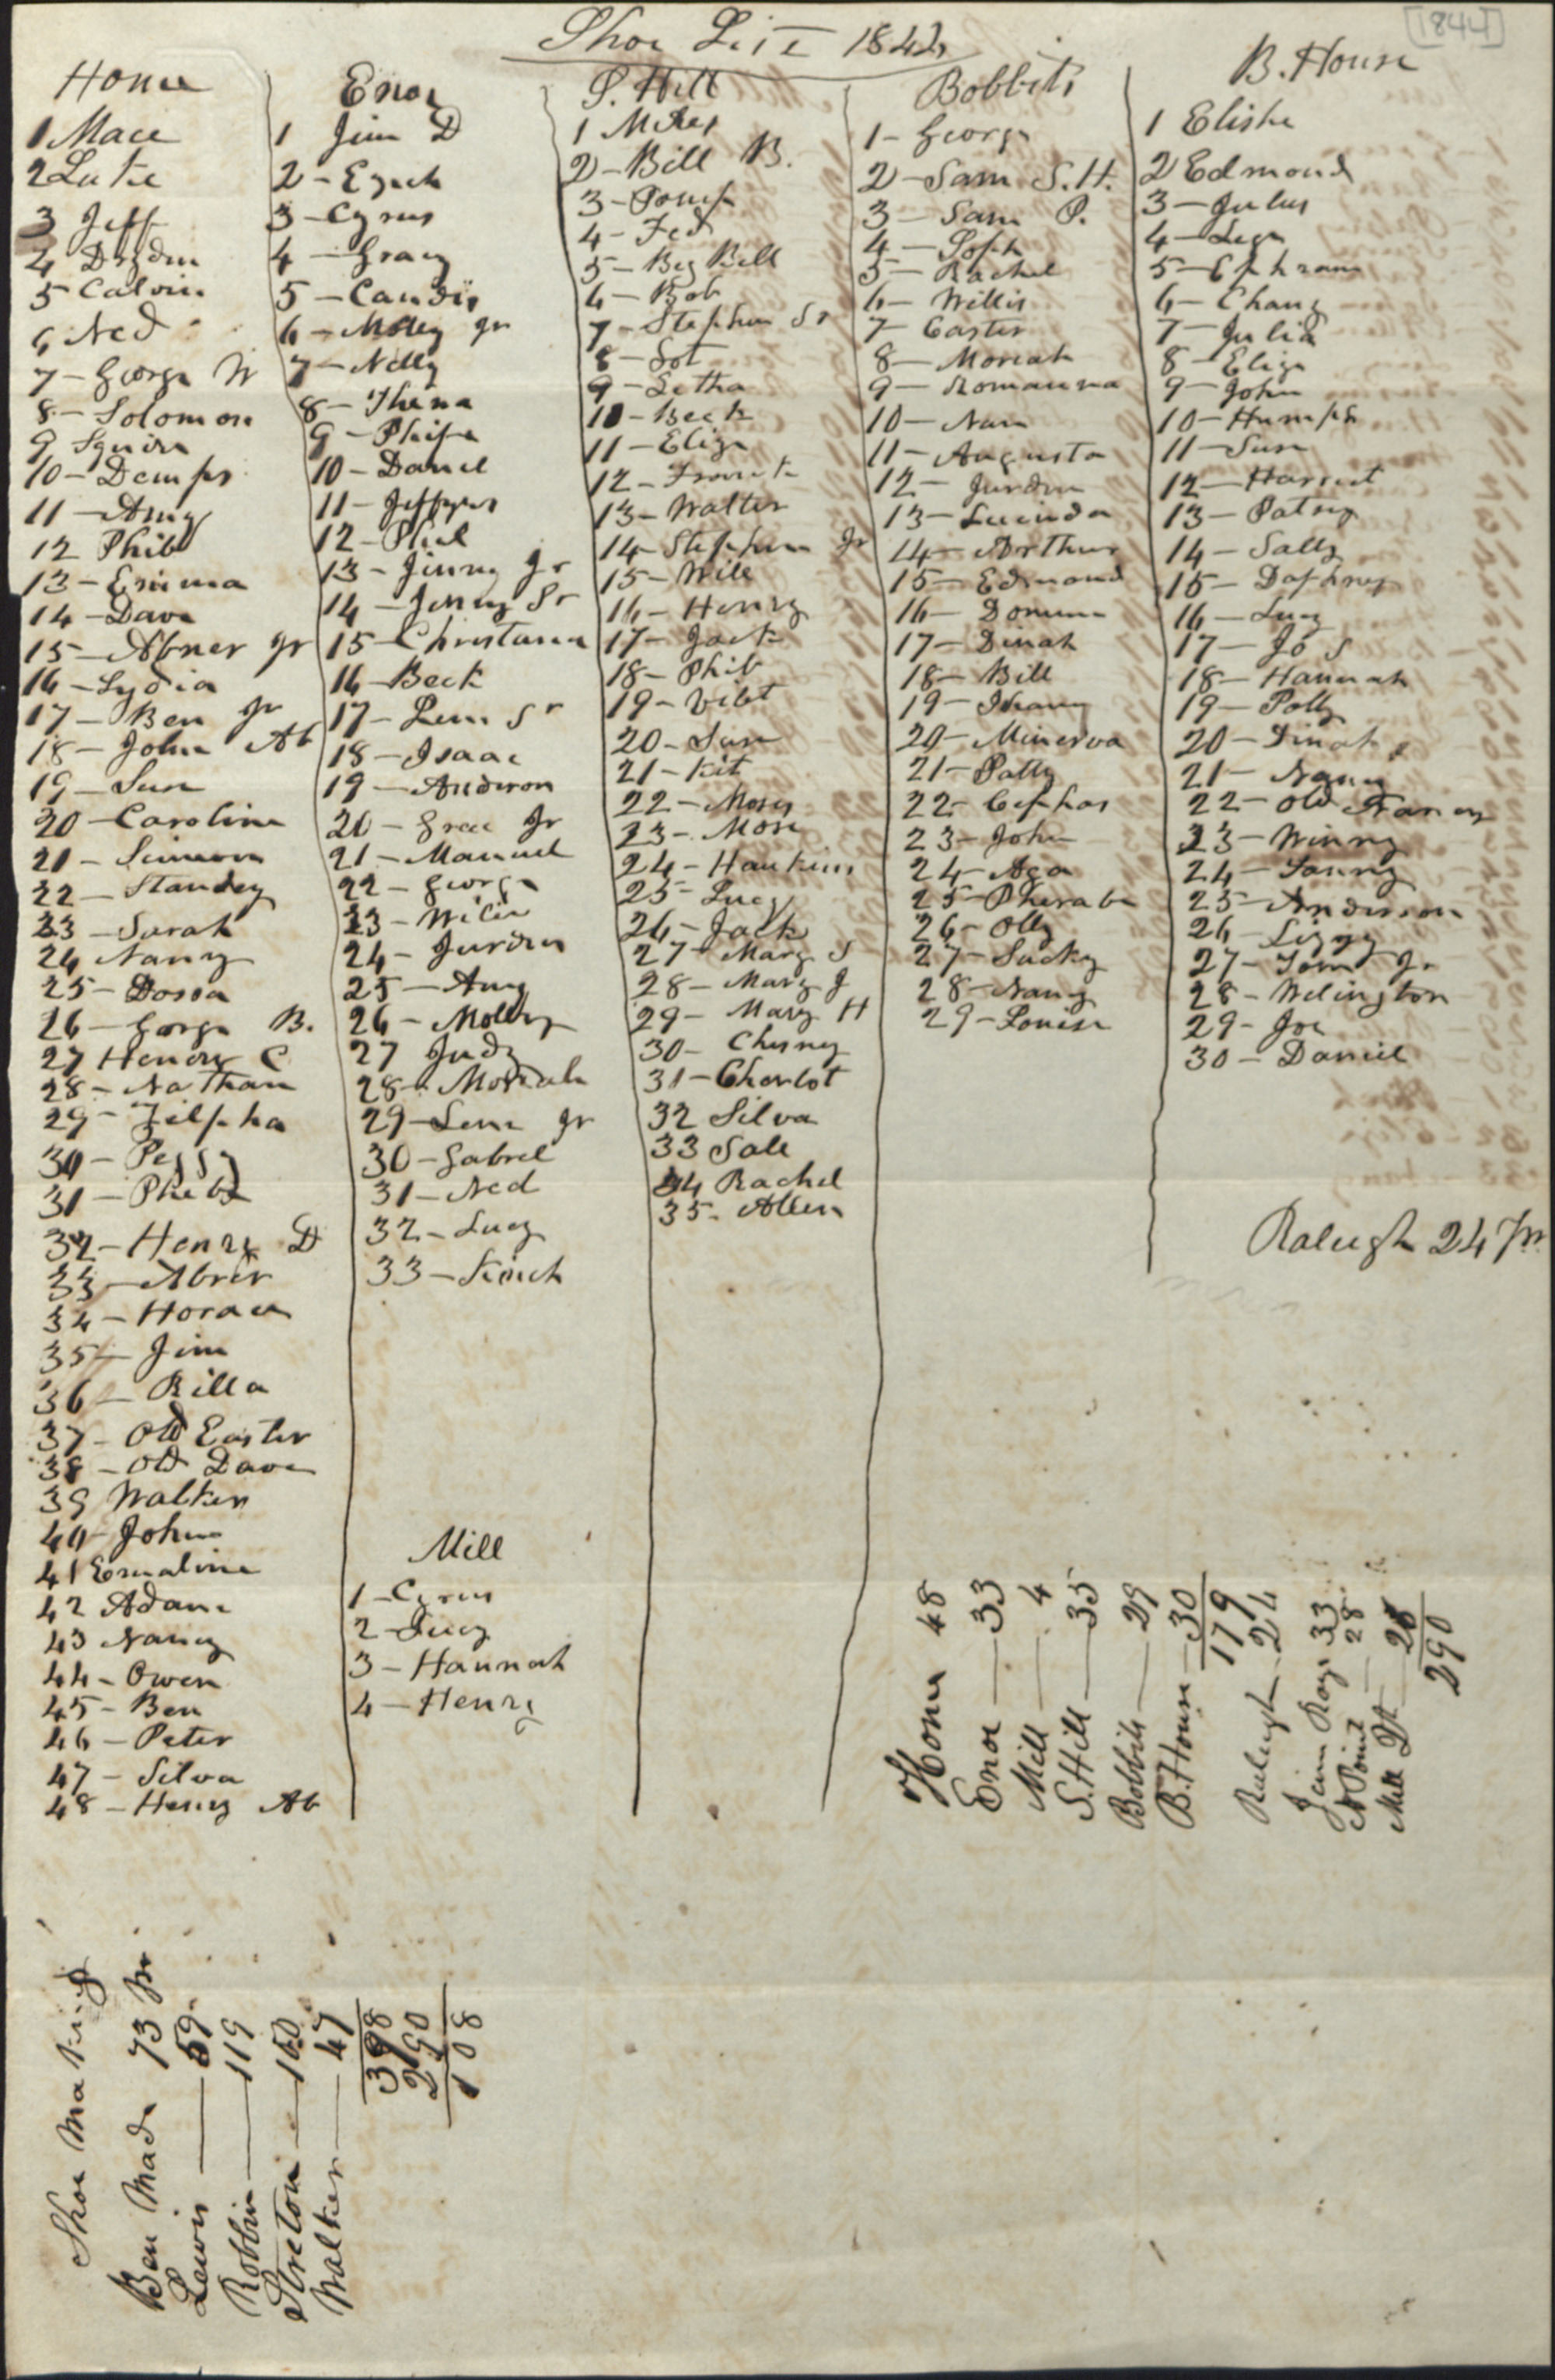 [1844]
Shoe List 1842
Home
1 Mace
2 Lutie
3 Jeff
4 Dryden
5 Calvin
6 Ned
7 - George W
8 - Solomon
9 Squire
10 - Demps
11 - Amy
12 Phib
13 - Emma
14 - Dave
15 - Abner Jr
16 - Lydia
17 - Ben Jr
18 - John Ab
19 - Sue
20 - Caroline
21 - Simeon
22 - Standey
23 - Sarah
24 Nancy
25 - Dossa
26 - George B.
27 Henery C
28 - Nathan
29 - Zilpha
30 - Peggy
31 - Phebe
32 - Henry D
33 - Abner
34 - Horace
35 - Jim
36 - Rilla
37 - Old Easter
38 - Old Dave
39 Walker
40 - John
41 Emaline
42 Adam
43 Nancy
44 - Owen
45 - Ben
46 - Peter
47 - Silva
48 - Henry Ab
Enoe
1 Jim D
2 -
3 - Cyrus
4 - Gracy
5 - Candis
6 - Molley Jr
7 - Nelly
8 - Thena
9 -
10 - Daniel
11 - Jefferys
12 - Phil
13 - Jinny Jr
14 - Jenny Sr
15 - Christiana
16 - Beck
17 - Lem Sr
18 - Isaac
19 - Anderson
20 - Grace Jr
21 - Manuel
22 - George
23 -
24 - Jurden
25 - Amy
26 - Molley
27 Judy
28 - Moriah
29 - Lem Jr
30 - Gabrel
31 - Ned
32 - Lucy
33 - Kinch
Mill
1 - Cyrus
2 - Lucy
3 - Hannah
4 - Henry
S. Hill
1 Mikes
2 - Bill B.
3 - Pomp
4 - Fed
5 - Big Bill
6 - Bob
7 - Stephen Sr
8 - Sol
9 - Letha
10 - Beck
11 - Eliza
12 - Frank
13 - Walter
14 - Stephen Jr
15 - Will
16 - Henry
17 - Jack
18 - Phib
19 - Vilet
20 - Sue
21 - Kit
22 - Moses
23 - Mose
24 - Hawkins
25 - Lucy
26 - Jack
27 - Mary S
28 - Mary J
29 - Mary H
30 - Chesney
31 - Charlot
32 Silva
33 Sall
34 Rachel
35 - Allen
Bobbits
1 - George
2 - Sam S.H.
3 - Sam P.
4 - Soph
5 - Rachel
6 - Willis
7 Easter
8 - Moriah
9 - Romanna
10 - Nan
11 - Augusta
12 - Jurden
13 - Lucinda
14 - Arthur
15 - Edmond
16 -
17 - Dinah
18 - Bill
19 -
20 - Minerva
21 - Patty
22 - Cephas
23 - John
24 - Aga
25 - Pheraba
26 - Olly
27 - Sucky
28 - Nancy
29 - Louisa
B. House
1 Elisha
2 Edmond
3 - Julus
4 -
5 - Ephram
6 - Chany
7 - Julia
8 - Eliza
9 - John
10 - Humph
11 - Sue
12 - Harriet
13 - Patsey
14 - Sally
15 - Daphney
16 - Lucy
17 - Jo S
18 - Hannah
19 - Polly
20 - Dinah
21 - Nancy
22 - Old Frances
23 - Winny
24 - Fanny
25 - Anderson
26 - Lizzy
27 - Tom Jr
28 - Welington
29 - Joe
30 - Daniel
Raleigh 24 Pr
Home 48
Enoe - 33
Mill - 4
S. Hill - 35
Bobbits - 29
B. House - 30
179
Raleigh - 24
33
N Point - 28
Mill Qt - 26
290
Shoe Making
Ben Made 73 pr
Lewis - 59
Robbin - 119
Streton - 100
Walker - 47
398
290
108